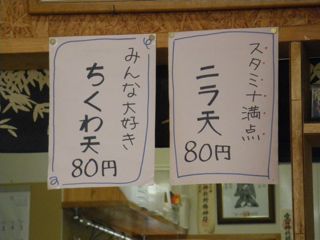 スタミナ満点
ニラ天
80円
みんな大好き
ちくわ天
80円